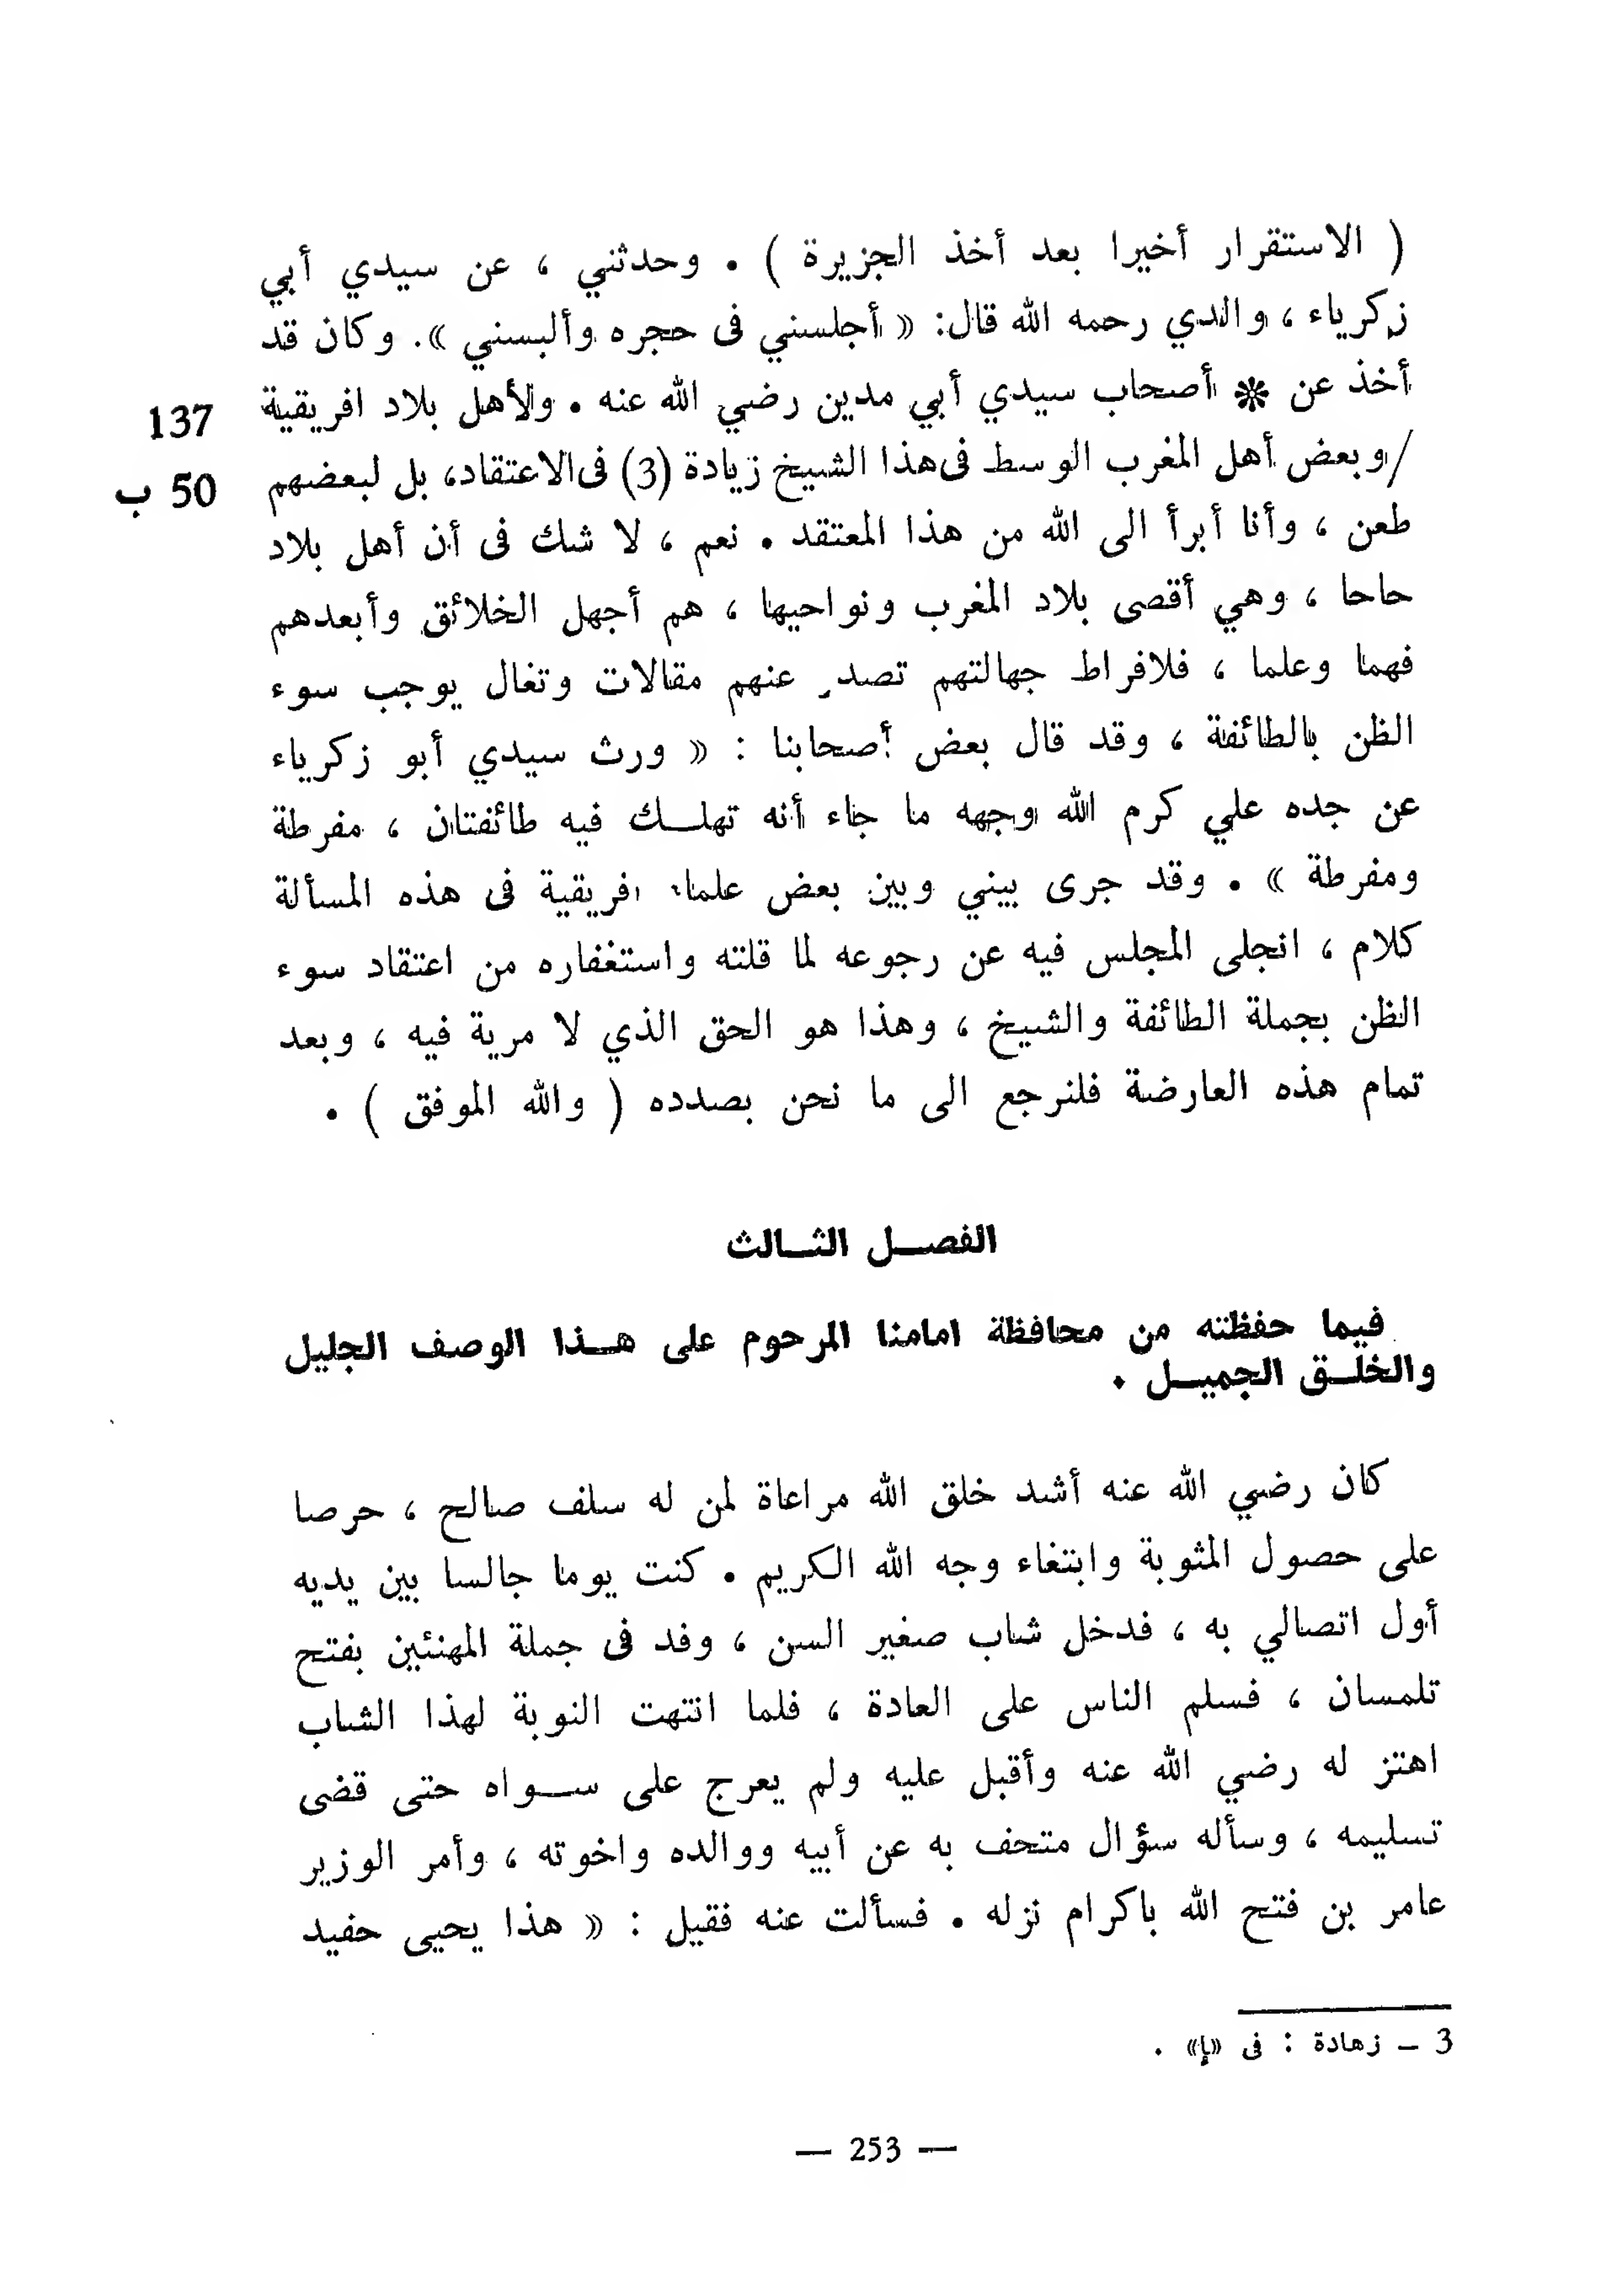 ( الاستقرار أخيرا بعد أخذ الجزيرة ) . وحدثني ، عن سيدي أبي
زكرياء ، والدي رحمه الله قال: « أجلسني فى حجره وألبسني ». وكان قد
أخذ عن * أصحاب سيدي أبي مدين رضي الله عنه . ولأهل بلاد افريقية
137
/وبعض أهل المغرب الوسط فى هذا الشيخ زيادة (3) فى الاعتقاد، بل لبعضهم
50 ب
طعن ، وأنا أبرأ الى الله من هذا المعتقد . نعم ، لا شك فى أن أهل بلاد
حاحا ، وهي أقصى بلاد المغرب ونواحيها ، هم أجهل الخلائق وأبعدهم
فهما وعلما ، فلافراط جهالتهم تصدر عنهم مقالات وتغال يوجب سوء
الظن بالطائفة ، وقد قال بعض أصحابنا : « ورث سيدي أبو زكرياء
عن جده علي كرم الله وجهه ما جاء أنه تهلــك فيه طائفتان ، مفرطة
ومفرطة » . وقد جرى بيني وبين بعض علماء افريقية فى هذه المسألة
كلام ، انجلى المجلس فيه عن رجوعه لما قلته واستغفاره من اعتقاد سوء
الظن بجملة الطائفة والشيخ ، وهذا هو الحق الذي لا مرية فيه ، وبعد
تمام هذه العارضة فلنرجع الى ما نحن بصدده ( والله الموفق ) .
الفصــل الثــالث
فيما حفظته من محافظة امامنا المرحوم على هــذا الوصف الجليل
والخلــق الجميــل .
كان رضي الله عنه أشد خلق الله مراعاة لمن له سلف صالح ، حرصا
على حصول المثوبة وابتغاء وجه الله الكريم . كنت يوما جالسا بين يديه
أول اتصالي به ، فدخل شاب صغير السن ، وفد فى جملة المهنئين بفتح
تلمسان ، فسلم الناس على العادة ، فلما انتهت النوبة لهذا الشاب
اهتز له رضي الله عنه وأقبل عليه ولم يعرج على ســواه حتى قضى
تسليمه ، وسأله سؤال متحف به عن أبيه ووالده واخوته ، وأمر الوزير
عامر بن فتح الله باكرام نزله . فسألت عنه فقيل : « هذا يحيى حفيد
3 – زهادة : فى «إ» .
— 253 —